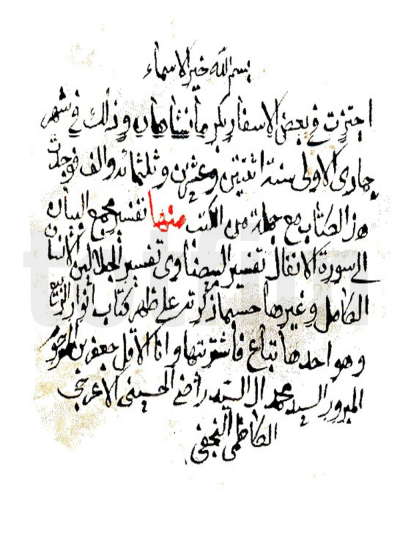 بسم الله خير الاسماء
اجتزت في بعض الاسفار بكرمانشاهان وذلك في شهر
جمادى الاولى سنة اثنتين وعشرين وثلثمائة والف فوجدت
هذا الكتاب مع جملة من الكتب منها تفسير مجمع البيان
الى سورة الانفال تفسير البيضاوى تفسير الجلالين
الكامل وغيرها حسبما ذكرته على ظهر كتاب انوار
وهو احدها تباع فاشتريتها وانا الاقل جعفر بن المرحوم
المبرور السيد محمد ال السيد راضي الحسيني الاعرجي
الكاظمي النجفي